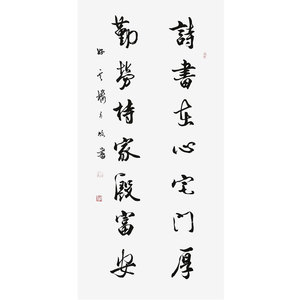 詩書在心宅門厚
勤勞持家殷富安